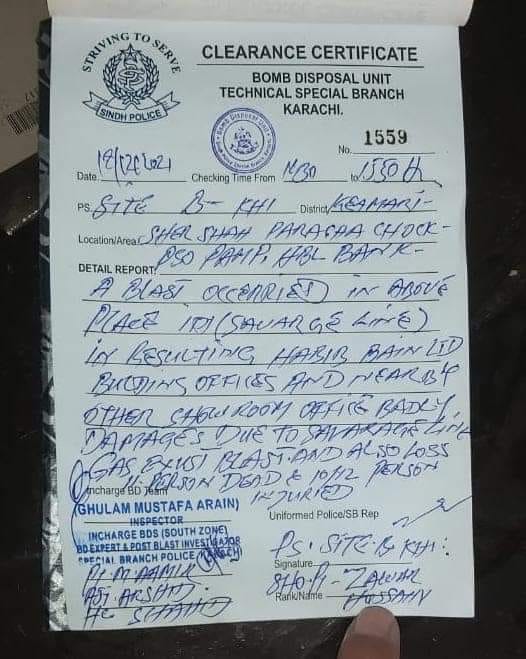 STRIVING TO SERVE
SINDH POLICE
CLEARANCE CERTIFICATE
BOMB DISPOSAL UNIT
TECHNICAL SPECIAL BRANCH
KARACHI.
Bomb Disposal Unit
No. 1559
Date 18/12/2021 Checking Time From to 1550 H
PS. SITE B- KHI District KEAMARI-
Location/Area: SHER SHAH PARACAA CHOCK-
PSO PAMP, HBL BANK-
DETAIL REPORT:
A BLAST OCCERRIED IN ABOVE
PLACE IN (SAVARGE LINE)
IN RESULTING HABIB BAIN LTD
BUILDING OFFICES AND NEARBY
OTHER SHOWROOM OFFICE BADLY
DAMAGES DUE TO SAVARAGE LINE
GAS EXUST BLAST. AND ALSO LOSS
11- PERSON DEAD & 10/12 PERSON
INJURIED
Incharge BD Team
(GHULAM MUSTAFA ARAIN)
INSPECTOR
INCHARGE BDS (SOUTH ZONE)
BD EXPERT & POST BLAST INVESTIGATOR
SPECIAL BRANCH POLICE KARACHI
AAMIR
ASI. ARSHD
HC
Uniformed Police/SB Rep
PS. SITE-B KHI:
Signature
SHO-PI- ZAWAR
Rank/Name HUSSAIN